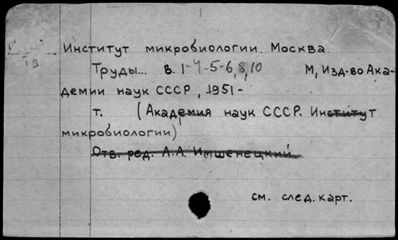 Институт микробиологии. Москва
Труды... в. 1-4-5-6,8,10 М, Изд-во Ака-
демии наук СССР, 1951-
т. (Академия наук СССР. Институт
микробиологии)
Отв. ред. А.А. Имшенецкий.
см. след. карт.